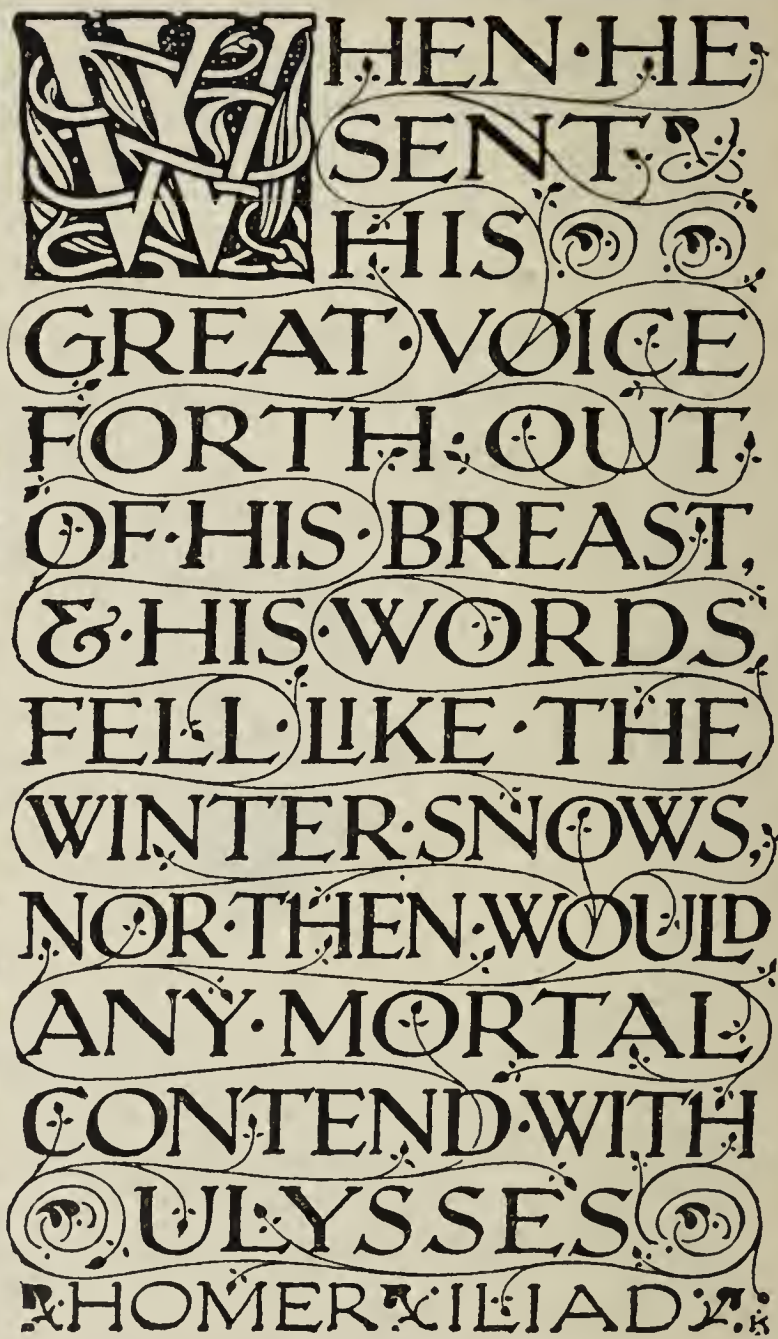 WHEN·HE
SENT
HIS
GREAT·VOICE
FORTH·OUT
OF·HIS·BREAST,
&·HIS·WORDS
FELL·LIKE·THE
WINTER·SNOWS,
NOR·THEN·WOULD
ANY·MORTAL
CONTEND·WITH
ULYSSES
HOMER ILIAD
K